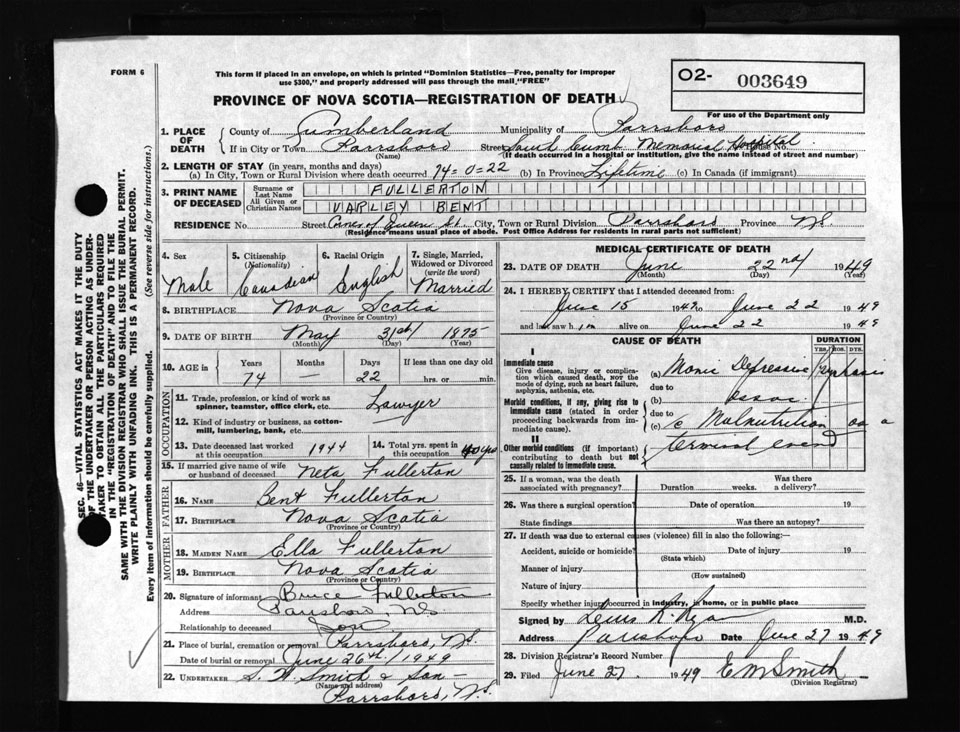 FORM 6
This form if placed in an envelope, on which is printed "Dominion Statistics—Free, penalty for improper
use $300," and properly addressed will pass through the mail "FREE"
O2- 003649
For use of the Department only
PROVINCE OF NOVA SCOTIA—REGISTRATION OF DEATH
1. PLACE OF DEATH County of Cumberland Municipality of Parrsboro
If in City or Town Parrsboro Street South Cumb. Memorial Hospital
(Name) (If death occurred in a hospital or institution, give the name instead of street and number)
2. LENGTH OF STAY (in years, months and days)
(a) In City, Town or Rural Division where death occurred 74-0-22 (b) In Province Lifetime (c) In Canada (if immigrant)
3. PRINT NAME OF DECEASED Surname or Last Name FULLERTON
All Given or Christian Names VARLEY BENT
RESIDENCE No. Street Corner of Queen St. City, Town or Rural Division Parrsboro Province N.S.
(Residence means usual place of abode. Post Office Address for residents in rural parts not sufficient)
4. Sex Male
5. Citizenship (Nationality) Canadian
6. Racial Origin English
7. Single, Married, Widowed or Divorced (write the word) Married
8. BIRTHPLACE Nova Scotia
(Province or Country)
9. DATE OF BIRTH May 31st 1875
(Month) (Day) (Year)
10. AGE in Years Months Days If less than one day old
74 — 22 hrs. or min.
OCCUPATION
11. Trade, profession, or kind of work as spinner, teamster, office clerk, etc. Lawyer
12. Kind of industry or business, as cotton-mill, lumbering, bank, etc.
13. Date deceased last worked at this occupation 1944
14. Total yrs. spent in this occupation 40 yrs
15. If married give name of wife or husband of deceased Neta Fullerton
FATHER
16. NAME Bent Fullerton
17. BIRTHPLACE Nova Scotia
(Province or Country)
MOTHER
18. MAIDEN NAME Ella Fullerton
19. BIRTHPLACE Nova Scotia
(Province or Country)
20. Signature of informant Bruce Fullerton
Address Parrsboro, N.S.
Relationship to deceased Son
21. Place of burial, cremation or removal Parrsboro, N.S.
Date of burial or removal June 26th, 1949
22. UNDERTAKER S. W. Smith & Son
(Name and address)
Parrsboro, N.S.
MEDICAL CERTIFICATE OF DEATH
23. DATE OF DEATH June 22nd 1949
(Month) (Day) (Year)
24. I HEREBY CERTIFY that I attended deceased from:
June 15 1949 to June 22 1949
and last saw him alive on June 22 1949
CAUSE OF DEATH
DURATION
YRS. MOS. DYS.
I
Immediate cause
Give disease, injury or complication which caused death, NOT the mode of dying, such as heart failure, asphyxia, asthenia, etc.
(a) Manic Depressive Psychosis
due to
Morbid conditions, if any, giving rise to immediate cause (stated in order proceeding backwards from immediate cause).
(b) assoc.
due to
(c) c Malnutrition as a
II
Other morbid conditions (if important) contributing to death but not causally related to immediate cause.
terminal event
25. If a woman, was the death associated with pregnancy? Duration weeks. Was there a delivery?
26. Was there a surgical operation? Date of operation 19
State findings Was there an autopsy?
27. If death was due to external causes (violence) fill in also the following:—
Accident, suicide or homicide? Date of injury 19
(State which)
Manner of injury
(How sustained)
Nature of injury
Specify whether injury occurred in industry, in home, or in public place
Signed by M.D.
Address Parrsboro Date June 27 1949
28. Division Registrar's Record Number
29. Filed June 27. 1949 E M Smith
(Division Registrar)
SEC. 46—VITAL STATISTICS ACT MAKES IT THE DUTY
OF THE UNDERTAKER OR PERSON ACTING AS UNDER-
TAKER TO OBTAIN ALL THE PARTICULARS REQUIRED
IN THE "REGISTRATION OF DEATH" AND TO FILE THE
SAME WITH THE DIVISION REGISTRAR WHO SHALL ISSUE THE BURIAL PERMIT.
WRITE PLAINLY WITH UNFADING INK. THIS IS A PERMANENT RECORD.
Every item of information should be carefully supplied. (See reverse side for instructions.)